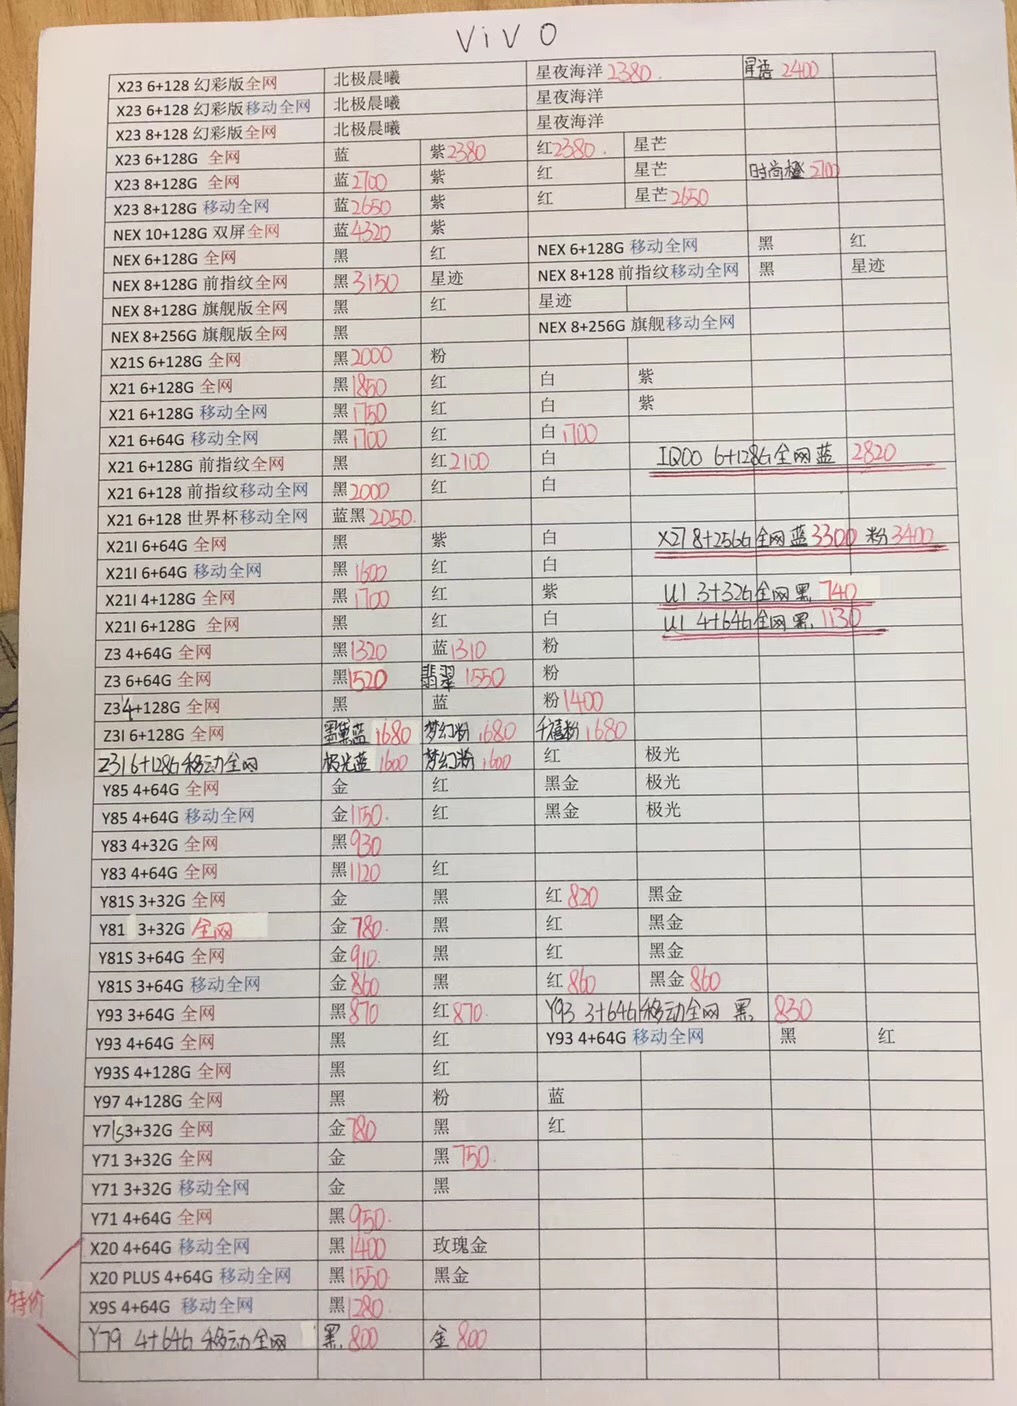 ViVO
X23 6+128 幻彩版全网 北极晨曦 星夜海洋 2380. 星语 2400
X23 6+128 幻彩版移动全网 北极晨曦 星夜海洋
X23 8+128 幻彩版全网 北极晨曦 星夜海洋
X23 6+128G 全网 蓝 紫 2380 红 2380. 星芒
X23 8+128G 全网 蓝 2700 紫 红 星芒 时尚橙 2700
X23 8+128G 移动全网 蓝 2650 紫 红 星芒 2650
NEX 10+128G 双屏全网 蓝 4320 紫
NEX 6+128G 全网 黑 红 NEX 6+128G 移动全网 黑 红
NEX 8+128G 前指纹全网 黑 3150 星迹 NEX 8+128 前指纹移动全网 黑 星迹
NEX 8+128G 旗舰版全网 黑 红 星迹
NEX 8+256G 旗舰版全网 黑 NEX 8+256G 旗舰移动全网
X21S 6+128G 全网 黑 2000 粉
X21 6+128G 全网 黑 1850 红 白 紫
X21 6+128G 移动全网 黑 1750 红 白 紫
X21 6+64G 移动全网 黑 1700 红 白 1700
X21 6+128G 前指纹全网 黑 红 2100 白 IQOO 6+128G全网 蓝 2820
X21 6+128 前指纹移动全网 黑 2000 红 白
X21 6+128 世界杯移动全网 蓝黑 2050.
X21I 6+64G 全网 黑 紫 白 X27 8+256G全网 蓝 3300 粉 3400
X21I 6+64G 移动全网 黑 1600 红 白
X21I 4+128G 全网 黑 1700 红 紫 U1 3+32G全网 黑 740
X21I 6+128G 全网 黑 红 白 U1 4+64G全网 黑. 1130
Z3 4+64G 全网 黑 1320 蓝 1310 粉
Z3 6+64G 全网 黑 1520 翡翠 1550 粉
Z3 4+128G 全网 黑 蓝 粉 1400
Z3I 6+128G 全网 墨黛蓝 1680 梦幻粉 1680 千禧粉 1680
Z3I 6+128G 移动全网 极光蓝 1600 梦幻粉 1600 红 极光
Y85 4+64G 全网 金 红 黑金 极光
Y85 4+64G 移动全网 金 1150. 红 黑金 极光
Y83 4+32G 全网 黑 930
Y83 4+64G 全网 黑 1120 红
Y81S 3+32G 全网 金 黑 红 820 黑金
Y81 3+32G 全网 金 780. 黑 红 黑金
Y81S 3+64G 全网 金 910. 黑 红 黑金
Y81S 3+64G 移动全网 金 860 黑 红 860 黑金 860
Y93 3+64G 全网 黑 870 红 870. Y93 3+64G移动全网 黑. 830
Y93 4+64G 全网 黑 红 Y93 4+64G 移动全网 黑 红
Y93S 4+128G 全网 黑 红
Y97 4+128G 全网 黑 粉 蓝
Y71S 3+32G 全网 金 780 黑 红
Y71 3+32G 全网 金 黑 750.
Y71 3+32G 移动全网 金 黑
Y71 4+64G 全网 黑 950.
X20 4+64G 移动全网 黑 1400 玫瑰金
X20 PLUS 4+64G 移动全网 黑 1550 黑金
特价 X9S 4+64G 移动全网 黑 1280.
Y79 4+64G 移动全网 黑. 800 金 800